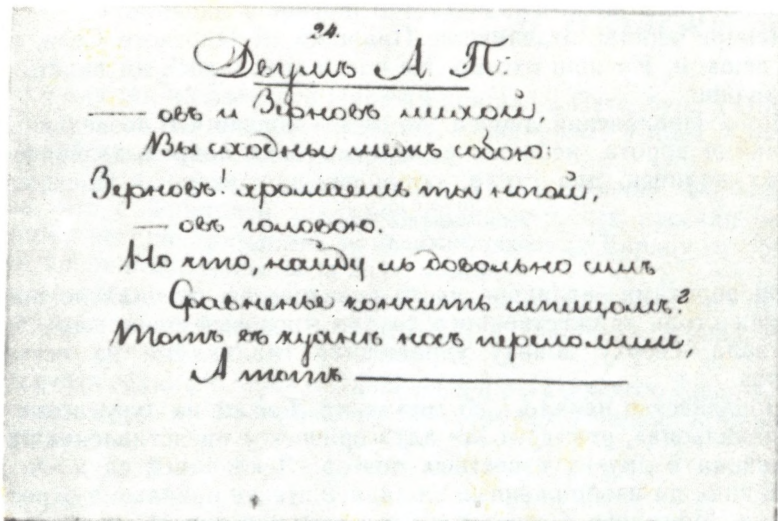 24.
Двумъ А П
——— овъ и Зерновъ лихой,
Вы сходны межъ собою:
Зерновъ! хромаешь ты ногой,
—— овъ головою.
Но что, найду ль довольно силъ
Сравненье кончить шпицомъ?
Тотъ въ кухнѣ носъ переломилъ,
А тотъ ———————